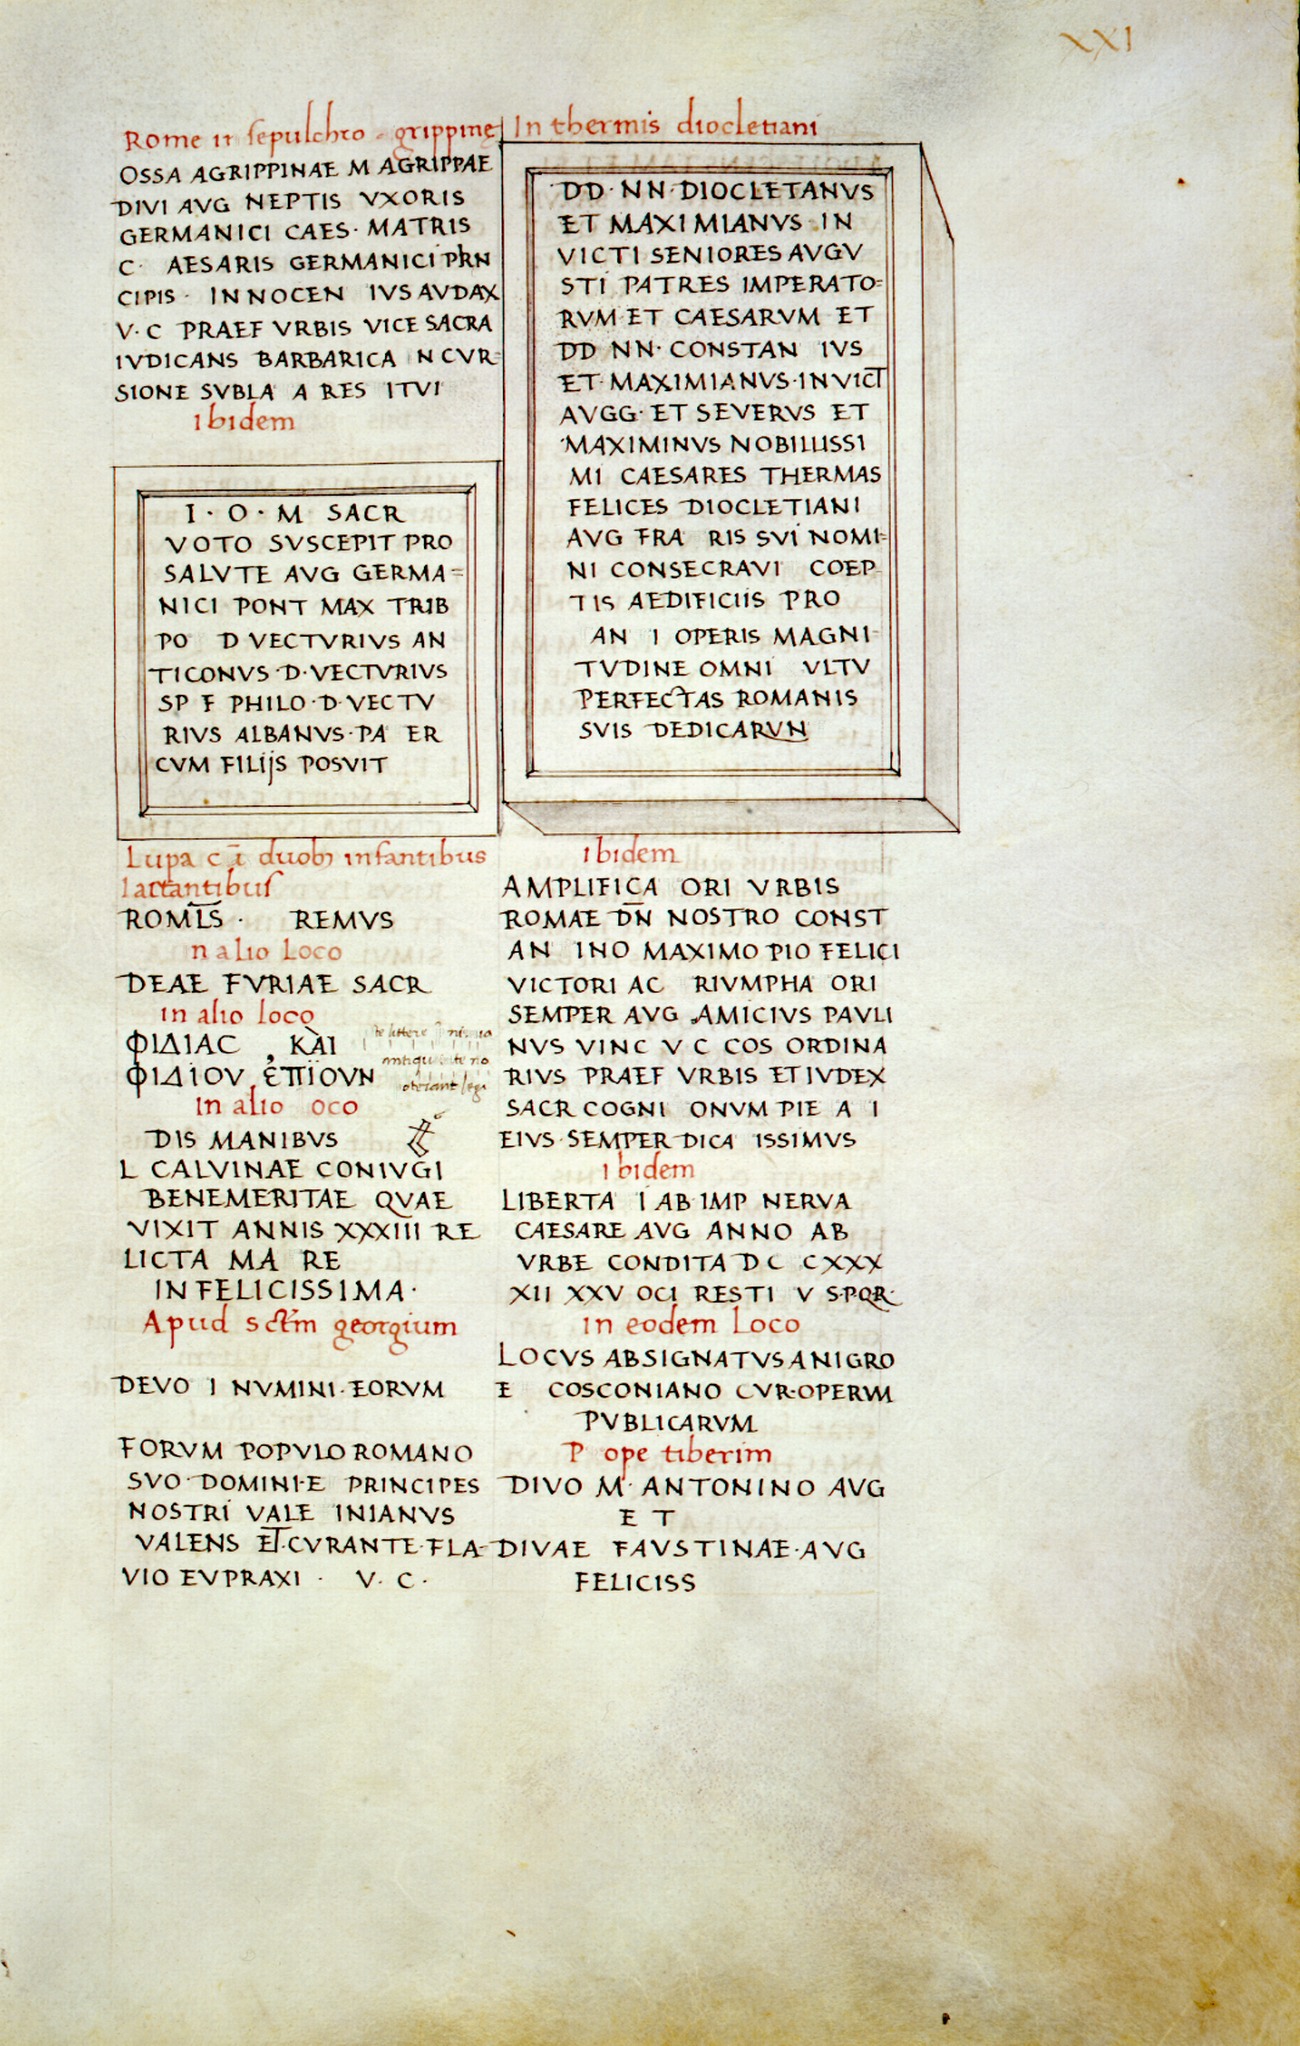 XXI
Rome in sepulchro grippine
OSSA AGRIPPINAE M AGRIPPAE
DIVI AVG NEPTIS VXORIS
GERMANICI CAES· MATRIS
C· AESARIS GERMANICI PRN
CIPIS · INNOCEN IVS AVDAX
V·C PRAEF VRBIS VICE SACRA
IVDICANS BARBARICA N CVR-
SIONE SVBLA A RES ITVI
Ibidem
I·O·M SACR
VOTO SVSCEPIT PRO
SALVTE AVG GERMA=
NICI PONT MAX TRIB
PO D VECTVRIVS AN
TICONVS·D·VECTVRIVS
SP F PHILO·D·VECTV
RIVS ALBANVS·PA ER
CVM FILIJS POSVIT
Lupa c i duob infantibus
lactantibus
ROMLS · REMVS
n alio Loco
DEAE FVRIAE SACR
in alio loco
ΦΙΔΙΑC ΚΑΙ
ΦΙΔΙΟΥ ΕΠΙΟΥΝ
In alio oco
DIS MANIBVS
L CALVINAE CONIVGI
BENEMERITAE QVAE
VIXIT ANNIS XXXIII RE
LICTA MA RE
INFELICISSIMA·
Apud sctm georgium
DEVO I NVMINI·EORVM
FORVM POPVLO ROMANO
SVO·DOMINI·E PRINCIPES
NOSTRI VALE INIANVS
VALENS ET·CVRANTE·FLA-
VIO EVPRAXI · V·C·
In thermis diocletiani
DD·NN·DIOCLETANVS
ET MAXIMIANVS IN
VICTI SENIORES AVGV
STI PATRES IMPERATO=
RVM ET CAESARVM ET
DD NN· CONSTAN IVS
ET·MAXIMIANVS·INVICT
AVGG·ET SEVERVS ET
MAXIMINVS NOBILISSI
MI CAESARES THERMAS
FELICES DIOCLETIANI
AVG FRA RIS SVI NOMI=
NI CONSECRAVI COEP
TIS AEDIFICIIS PRO
AN I OPERIS MAGNI
TVDINE OMNI VLTV
PERFECTAS ROMANIS
SVIS DEDICARVN
Ibidem
AMPLIFICA ORI VRBIS
ROMAE DN NOSTRO CONST
AN INO MAXIMO PIO FELICI
VICTORI AC RIVMPHA ORI
SEMPER AVG AMICIVS PAVLI
NVS VINC V C COS ORDINA
RIVS PRAEF VRBIS ET IVDEX
SACR COGNI ONVM PIE A I
EIVS·SEMPER DICA ISSIMVS
Ibidem
LIBERTA I AB IMP NERVA
CAESARE AVG ANNO AB
VRBE CONDITA D C CXXX
XII XXV OCI RESTI V S·P·Q·R·
in eodem Loco
LOCVS ABSIGNATVS A NIGRO
E COSCONIANO CVR·OPERVM
PVBLICARVM
P ope tiberim
DIVO M· ANTONINO AVG
ET
DIVAE FAVSTINAE·AVG
FELICISS